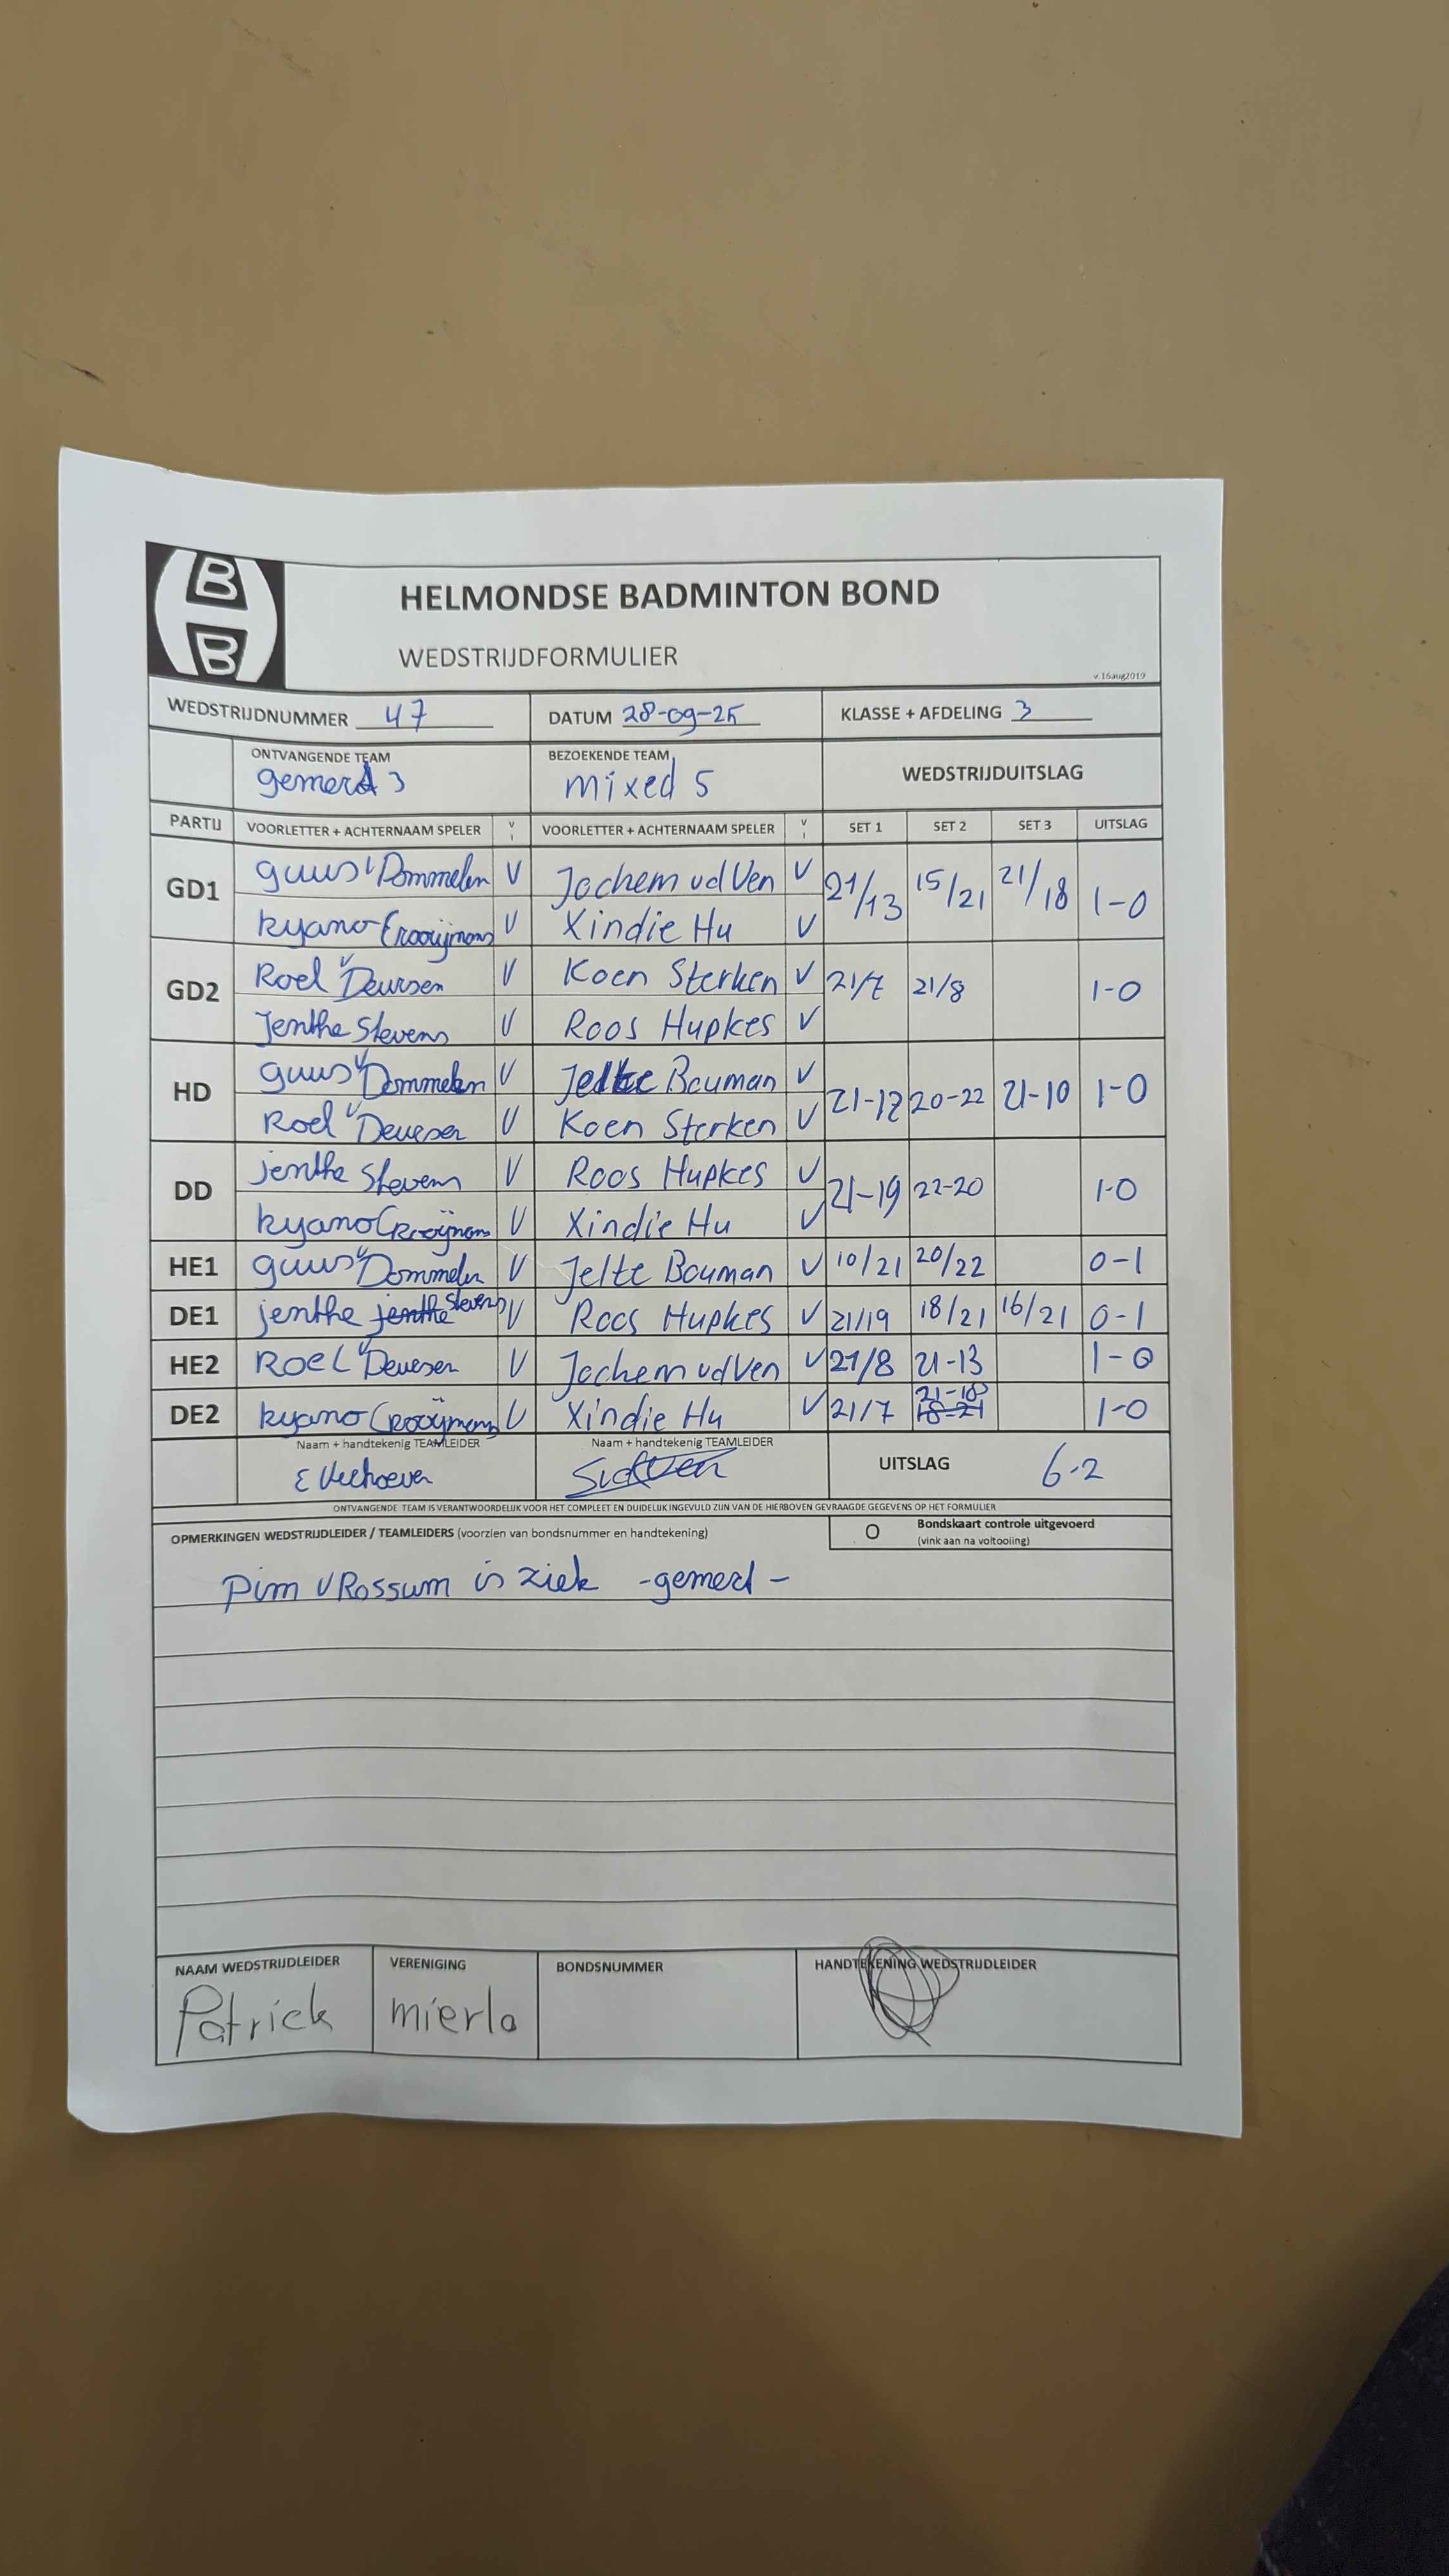 B
B
HELMONDSE BADMINTON BOND
WEDSTRIJDFORMULIER
v.16aug2019
WEDSTRIJDNUMMER 47 DATUM 28-09-25 KLASSE + AFDELING 3
ONTVANGENDE TEAM BEZOEKENDE TEAM WEDSTRIJDUITSLAG
gemerd 3 mixed 5
PARTIJ VOORLETTER + ACHTERNAAM SPELER V I VOORLETTER + ACHTERNAAM SPELER V I SET 1 SET 2 SET 3 UITSLAG
GD1 guus v Dommelen V Jochem vd Ven V 21/13 15/21 21/18 1-0
kyano Crooijmans V Xindie Hu V
GD2 Roel v Deursen V Koen Sterken V 21/7 21/8 1-0
Jenthe Stevens V Roos Hupkes V
HD guus v Dommelen V Jelte Bouman V 21-12 20-22 21-10 1-0
Roel v Deursen V Koen Sterken V
DD jenthe Stevens V Roos Hupkes V 21-19 22-20 1-0
kyano Crooijmans V Xindie Hu V
HE1 guus v Dommelen V Jelte Bouman V 10/21 20/22 0-1
DE1 jenthe jenthe Stevens V Roos Hupkes V 21/19 18/21 16/21 0-1
HE2 Roel v Deursen V Jochem vd Ven V 21/8 21-13 1-0
DE2 kyano Crooijmans V Xindie Hu V 21/7 21-18 18-21 1-0
Naam + handtekenig TEAMLEIDER Naam + handtekenig TEAMLEIDER
E Verhoeven UITSLAG 6-2
ONTVANGENDE TEAM IS VERANTWOORDELIJK VOOR HET COMPLEET EN DUIDELIJK INGEVULD ZIJN VAN DE HIERBOVEN GEVRAAGDE GEGEVENS OP HET FORMULIER
OPMERKINGEN WEDSTRIJDLEIDER / TEAMLEIDERS (voorzien van bondsnummer en handtekening) O Bondskaart controle uitgevoerd
(vink aan na voltooiing)
Pim v Rossum is ziek -gemerd-
NAAM WEDSTRIJDLEIDER VERENIGING BONDSNUMMER HANDTEKENING WEDSTRIJDLEIDER
Patrick mierlo